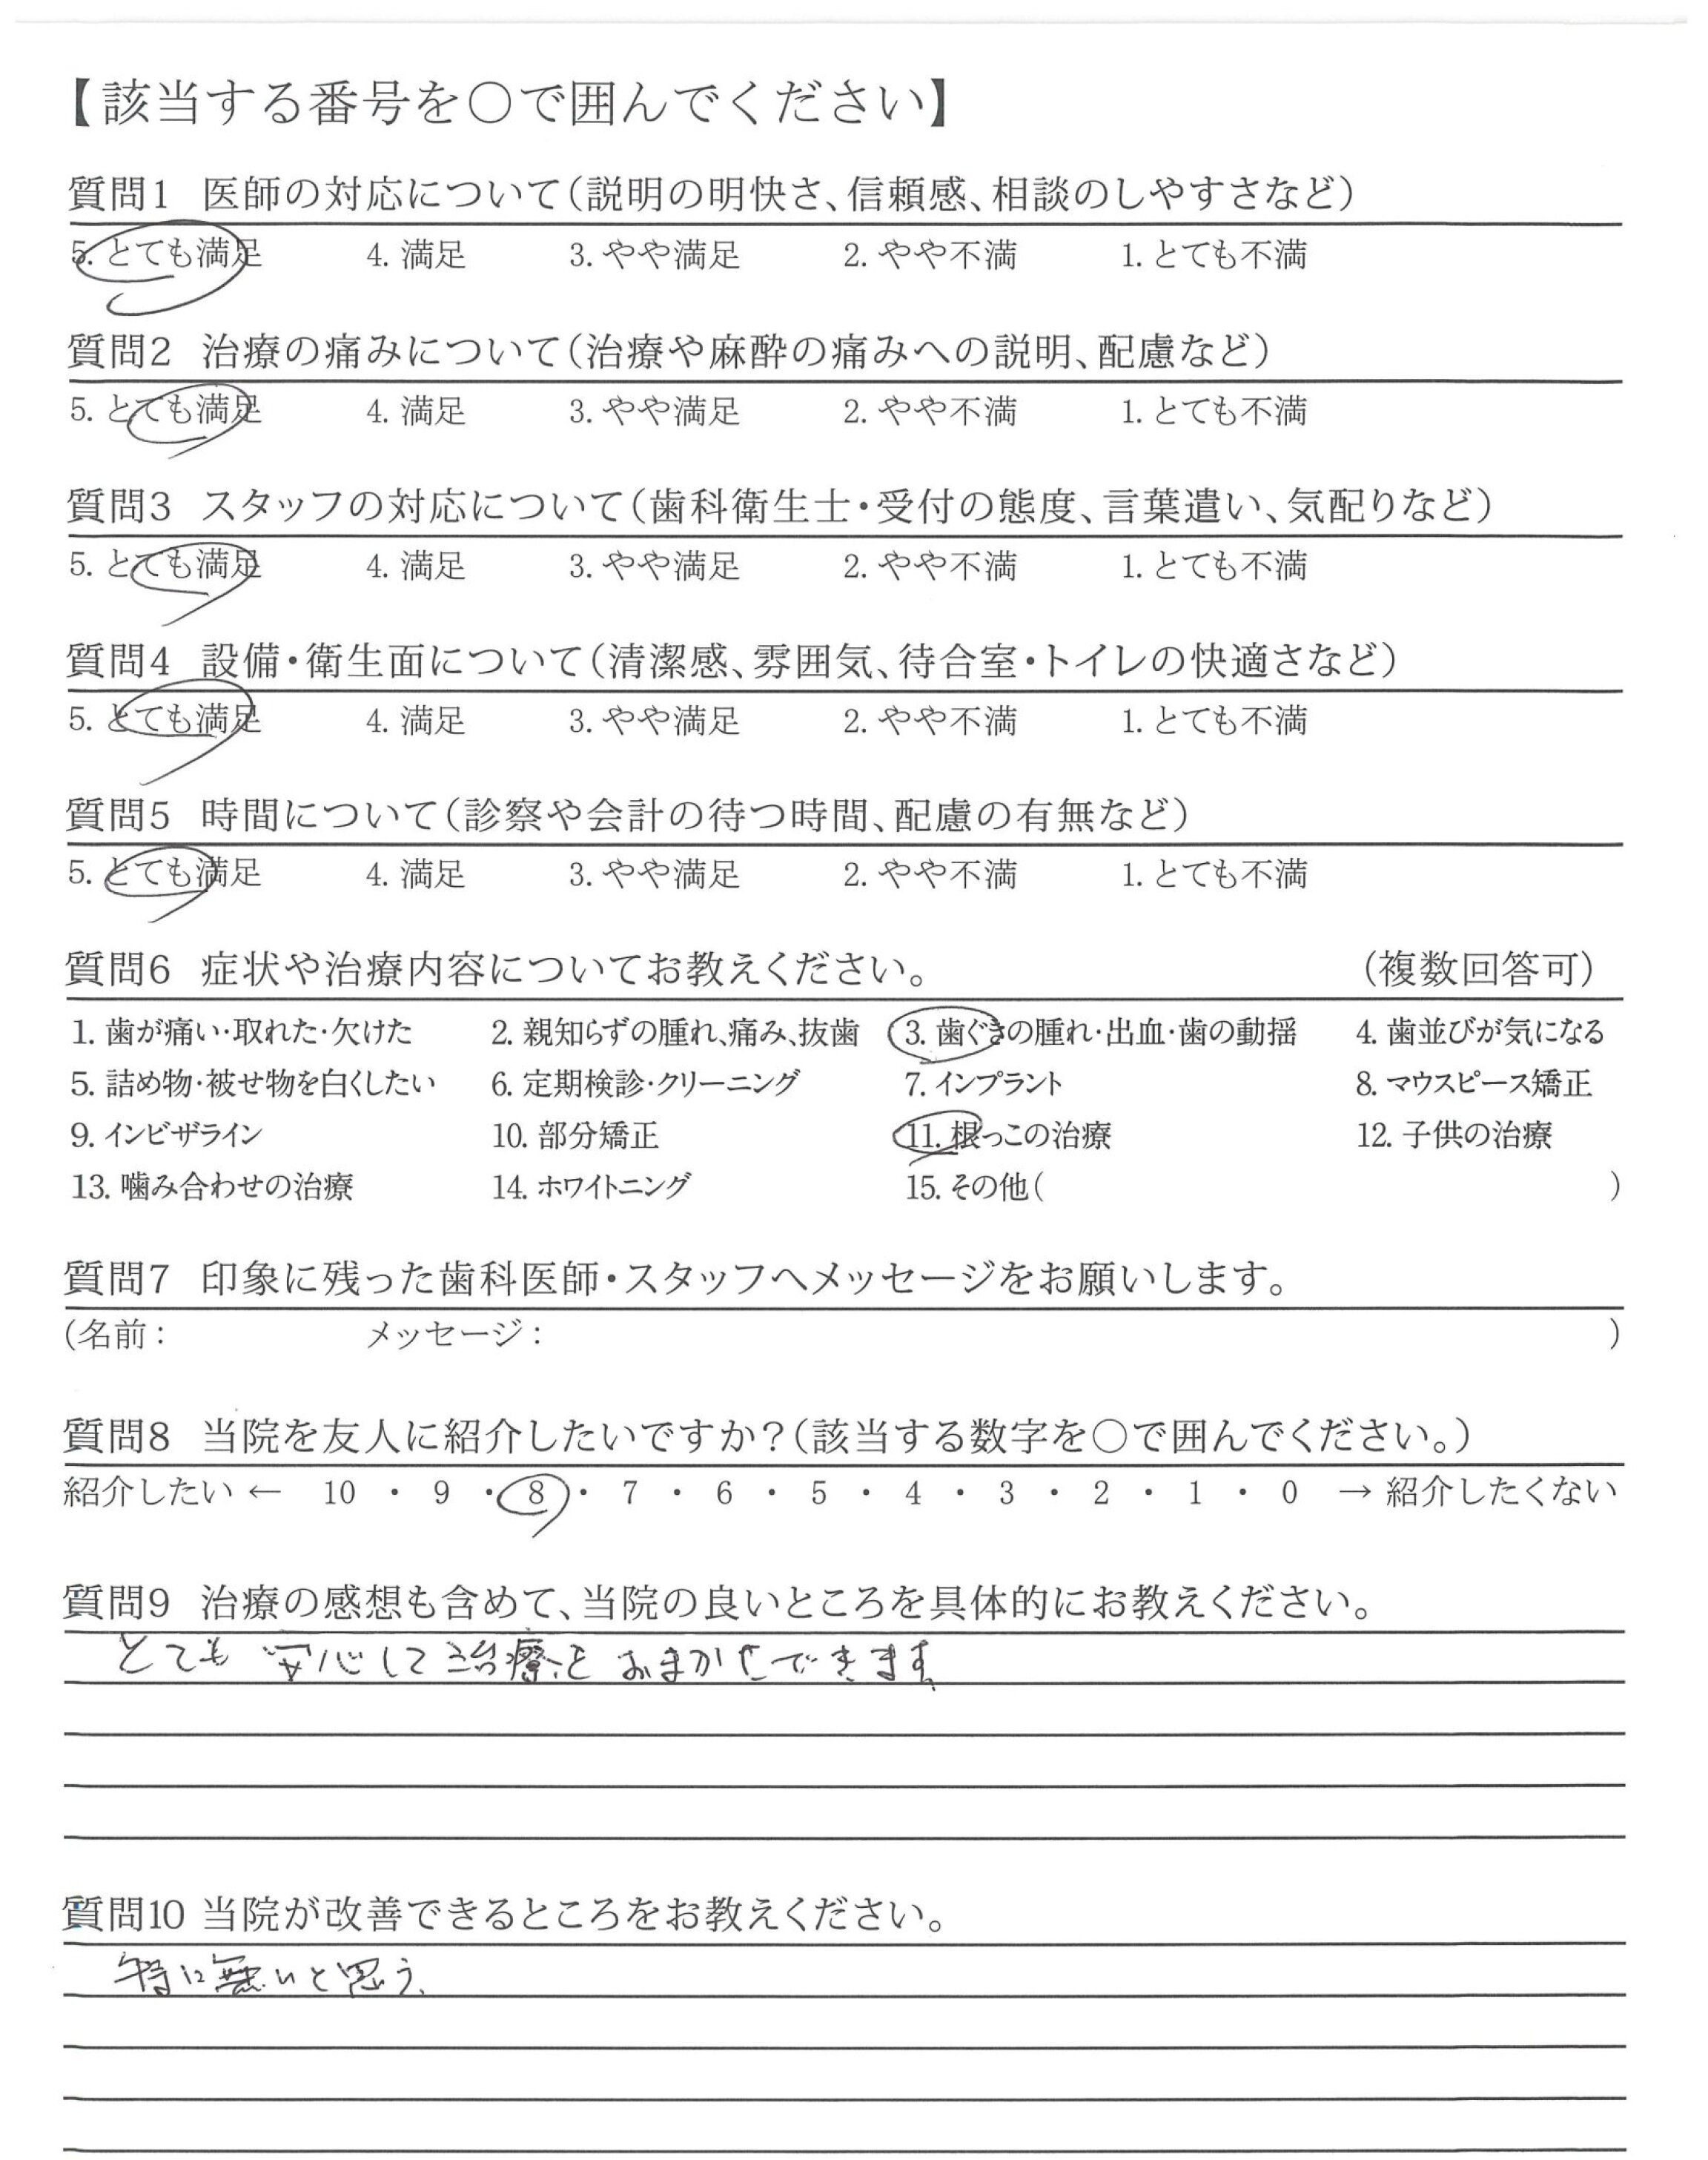 【該当する番号を〇で囲んでください】
質問1 医師の対応について（説明の明快さ、信頼感、相談のしやすさなど）
5. とても満足 4. 満足 3. やや満足 2. やや不満 1. とても不満
質問2 治療の痛みについて（治療や麻酔の痛みへの説明、配慮など）
5. とても満足 4. 満足 3. やや満足 2. やや不満 1. とても不満
質問3 スタッフの対応について（歯科衛生士・受付の態度、言葉遣い、気配りなど）
5. とても満足 4. 満足 3. やや満足 2. やや不満 1. とても不満
質問4 設備・衛生面について（清潔感、雰囲気、待合室・トイレの快適さなど）
5. とても満足 4. 満足 3. やや満足 2. やや不満 1. とても不満
質問5 時間について（診察や会計の待つ時間、配慮の有無など）
5. とても満足 4. 満足 3. やや満足 2. やや不満 1. とても不満
質問6 症状や治療内容についてお教えください。 （複数回答可）
1. 歯が痛い・取れた・欠けた 2. 親知らずの腫れ、痛み、抜歯 3. 歯ぐきの腫れ・出血・歯の動揺 4. 歯並びが気になる
5. 詰め物・被せ物を白くしたい 6. 定期検診・クリーニング 7. インプラント 8. マウスピース矯正
9. インビザライン 10. 部分矯正 11. 根っこの治療 12. 子供の治療
13. 噛み合わせの治療 14. ホワイトニング 15. その他（ ）
質問7 印象に残った歯科医師・スタッフへメッセージをお願いします。
（名前： メッセージ： ）
質問8 当院を友人に紹介したいですか？（該当する数字を〇で囲んでください。）
紹介したい ← 10 ・ 9 ・ 8 ・ 7 ・ 6 ・ 5 ・ 4 ・ 3 ・ 2 ・ 1 ・ 0 → 紹介したくない
質問9 治療の感想も含めて、当院の良いところを具体的にお教えください。
とても安心して治療をおまかせできます。
質問10 当院が改善できるところをお教えください。
特に無いと思う。